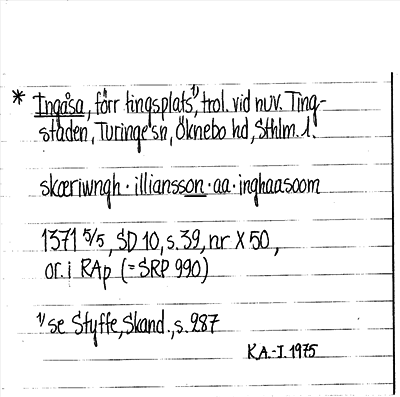 * Ingåsa, förr tingsplats¹⁾, trol. vid nuv. Ting-
staden, Turinge sn, Öknebo hd, Sthlm. l.
skæriwngh · illiansson · aa · inghaasoom
1371 5/5, SD 10, s. 39, nr X 50,
or. i RAp (= SRP 990)
¹⁾ se Styffe, Skand., s. 287
K.A.-J. 1975